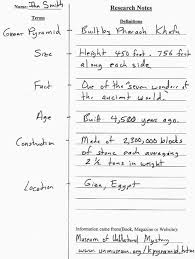 Name: John Smith
Research Notes
Terms
Definitions
Great Pyramid
Built by Pharaoh Khufu
Size
Height 450 feet. 756 feet
along each side.
Fact
One of the "seven wonders of
the ancient world."
Age
Built 4,500 years ago.
Construction
Made of 2,300,000 blocks
of stone each averaging
2 ½ tons in weight
Location
Giza, Egypt
Information came from(Book, Magazine or Website)
Museum of UnNatural Mystery
www.unmuseum.org/kpyramid.htm